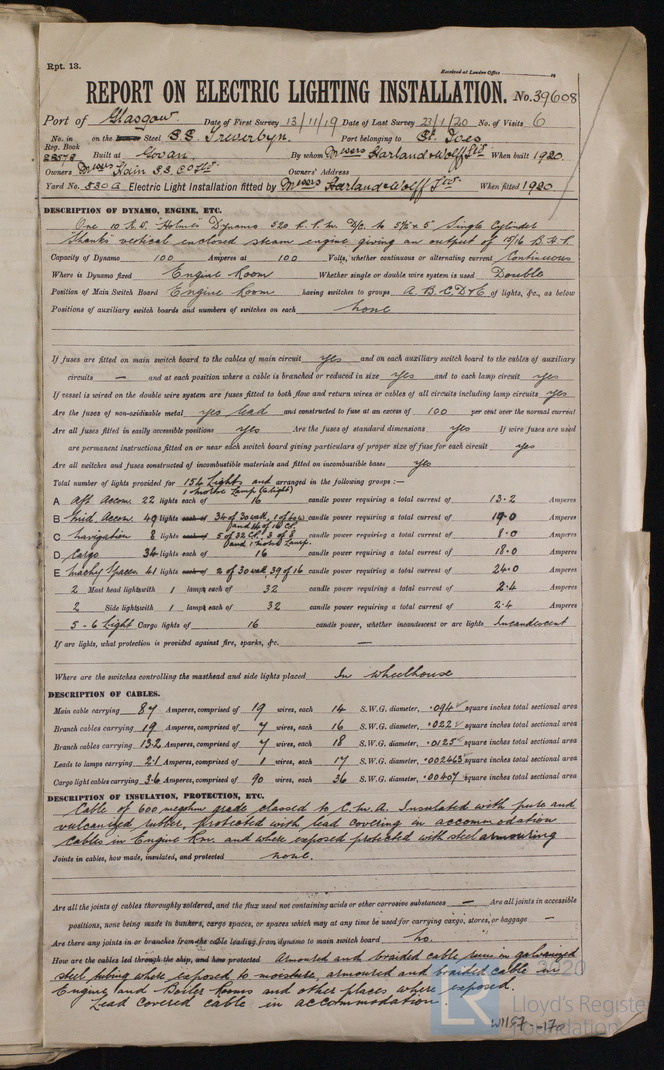 Rpt. 13.
Received at London Office 19
REPORT ON ELECTRIC LIGHTING INSTALLATION. No. 39608
Port of Glasgow Date of First Survey 13/11/19 Date of Last Survey 23/1/20 No. of Visits 6
No. in Reg. Book on the Steel S.S. Treverbyn. Port belonging to St. Ives
Built at Govan. By whom Messrs Harland & Wolff Ltd When built 1920
Owners Messrs Hain S.S. Co Ltd Owners' Address
Yard No. 530 G Electric Light Installation fitted by Messrs Harland & Wolff Ltd When fitted 1920
DESCRIPTION OF DYNAMO, ENGINE, ETC.
One 10 K.W. "Holmes" Dynamo 520 R.P.M. D/C. to 5½ x 5" Single Cylinder
Shanks vertical enclosed steam engine giving an output of 15/16 B.H.P.
Capacity of Dynamo 100 Amperes at 100 Volts, whether continuous or alternating current Continuous
Where is Dynamo fixed Engine Room Whether single or double wire system is used Double
Position of Main Switch Board Engine Room having switches to groups A.B.C.D & E of lights, &c., as below
Positions of auxiliary switch boards and numbers of switches on each none
If fuses are fitted on main switch board to the cables of main circuit yes and on each auxiliary switch board to the cables of auxiliary
circuits — and at each position where a cable is branched or reduced in size yes and to each lamp circuit yes
If vessel is wired on the double wire system are fuses fitted to both flow and return wires or cables of all circuits including lamp circuits yes
Are the fuses of non-oxidisable metal yes lead and constructed to fuse at an excess of 100 per cent over the normal current
Are all fuses fitted in easily accessible positions yes Are the fuses of standard dimensions yes If wire fuses are used
are permanent instructions fitted on or near each switch board giving particulars of proper size of fuse for each circuit yes
Are all switches and fuses constructed of incombustible materials and fitted on incombustible bases yes
Total number of lights provided for 154 Lights and arranged in the following groups :—
1 morse Lamp (6 light)
A Aft. Accom. 22 lights each of 16 candle power requiring a total current of 13.2 Amperes
B Mid. Accom. 49 lights each of 34 of 30 watt, 1 of 60 w candle power requiring a total current of 19.0 Amperes
and 14 of 16 CP.
C Navigation 8 lights each of 5 of 32 CP, 3 of 8 candle power requiring a total current of 8.0 Amperes
and 1 morse Lamp.
D Cargo 34 lights each of 16 candle power requiring a total current of 18.0 Amperes
E Machy Spaces 41 lights each of 2 of 30 watt, 39 of 16 candle power requiring a total current of 24.0 Amperes
2 Mast head lights with 1 lamp each of 32 candle power requiring a total current of 2.4 Amperes
2 Side lights with 1 lamp each of 32 candle power requiring a total current of 2.4 Amperes
5 - 6 Light Cargo lights of 16 candle power, whether incandescent or arc lights Incandescent
If arc lights, what protection is provided against fire, sparks, &c. —
Where are the switches controlling the masthead and side lights placed In wheelhouse
DESCRIPTION OF CABLES.
Main cable carrying 87 Amperes, comprised of 19 wires, each 14 S.W.G. diameter, .094 square inches total sectional area
Branch cables carrying 19 Amperes, comprised of 7 wires, each 16 S.W.G. diameter, .022 square inches total sectional area
Branch cables carrying 13.2 Amperes, comprised of 7 wires, each 18 S.W.G. diameter, .0125 square inches total sectional area
Leads to lamps carrying 2.1 Amperes, comprised of 1 wires, each 17 S.W.G. diameter, .002463 square inches total sectional area
Cargo light cables carrying 3.6 Amperes, comprised of 90 wires, each 36 S.W.G. diameter, .00407 square inches total sectional area
DESCRIPTION OF INSULATION, PROTECTION, ETC.
Cable of 600 megohm grade classed to C.M.A. Insulated with pure and
vulcanized rubber, protected with lead covering in accommodation
cables in Engine Rm. and where exposed protected with steel armouring
Joints in cables, how made, insulated, and protected none.
Are all the joints of cables thoroughly soldered, and the flux used not containing acids or other corrosive substances — Are all joints in accessible
positions, none being made in bunkers, cargo spaces, or spaces which may at any time be used for carrying cargo, stores, or baggage —
Are there any joints in or branches from the cable leading from dynamo to main switch board No.
How are the cables led through the ship, and how protected Armoured and braided cable run in galvanized
steel tubing where exposed to moisture, armoured and braided cable in
Engine and Boiler Rooms and other places where exposed.
Lead covered cable in accommodation.
LR
Lloyd's Register
Foundation
W1157-170